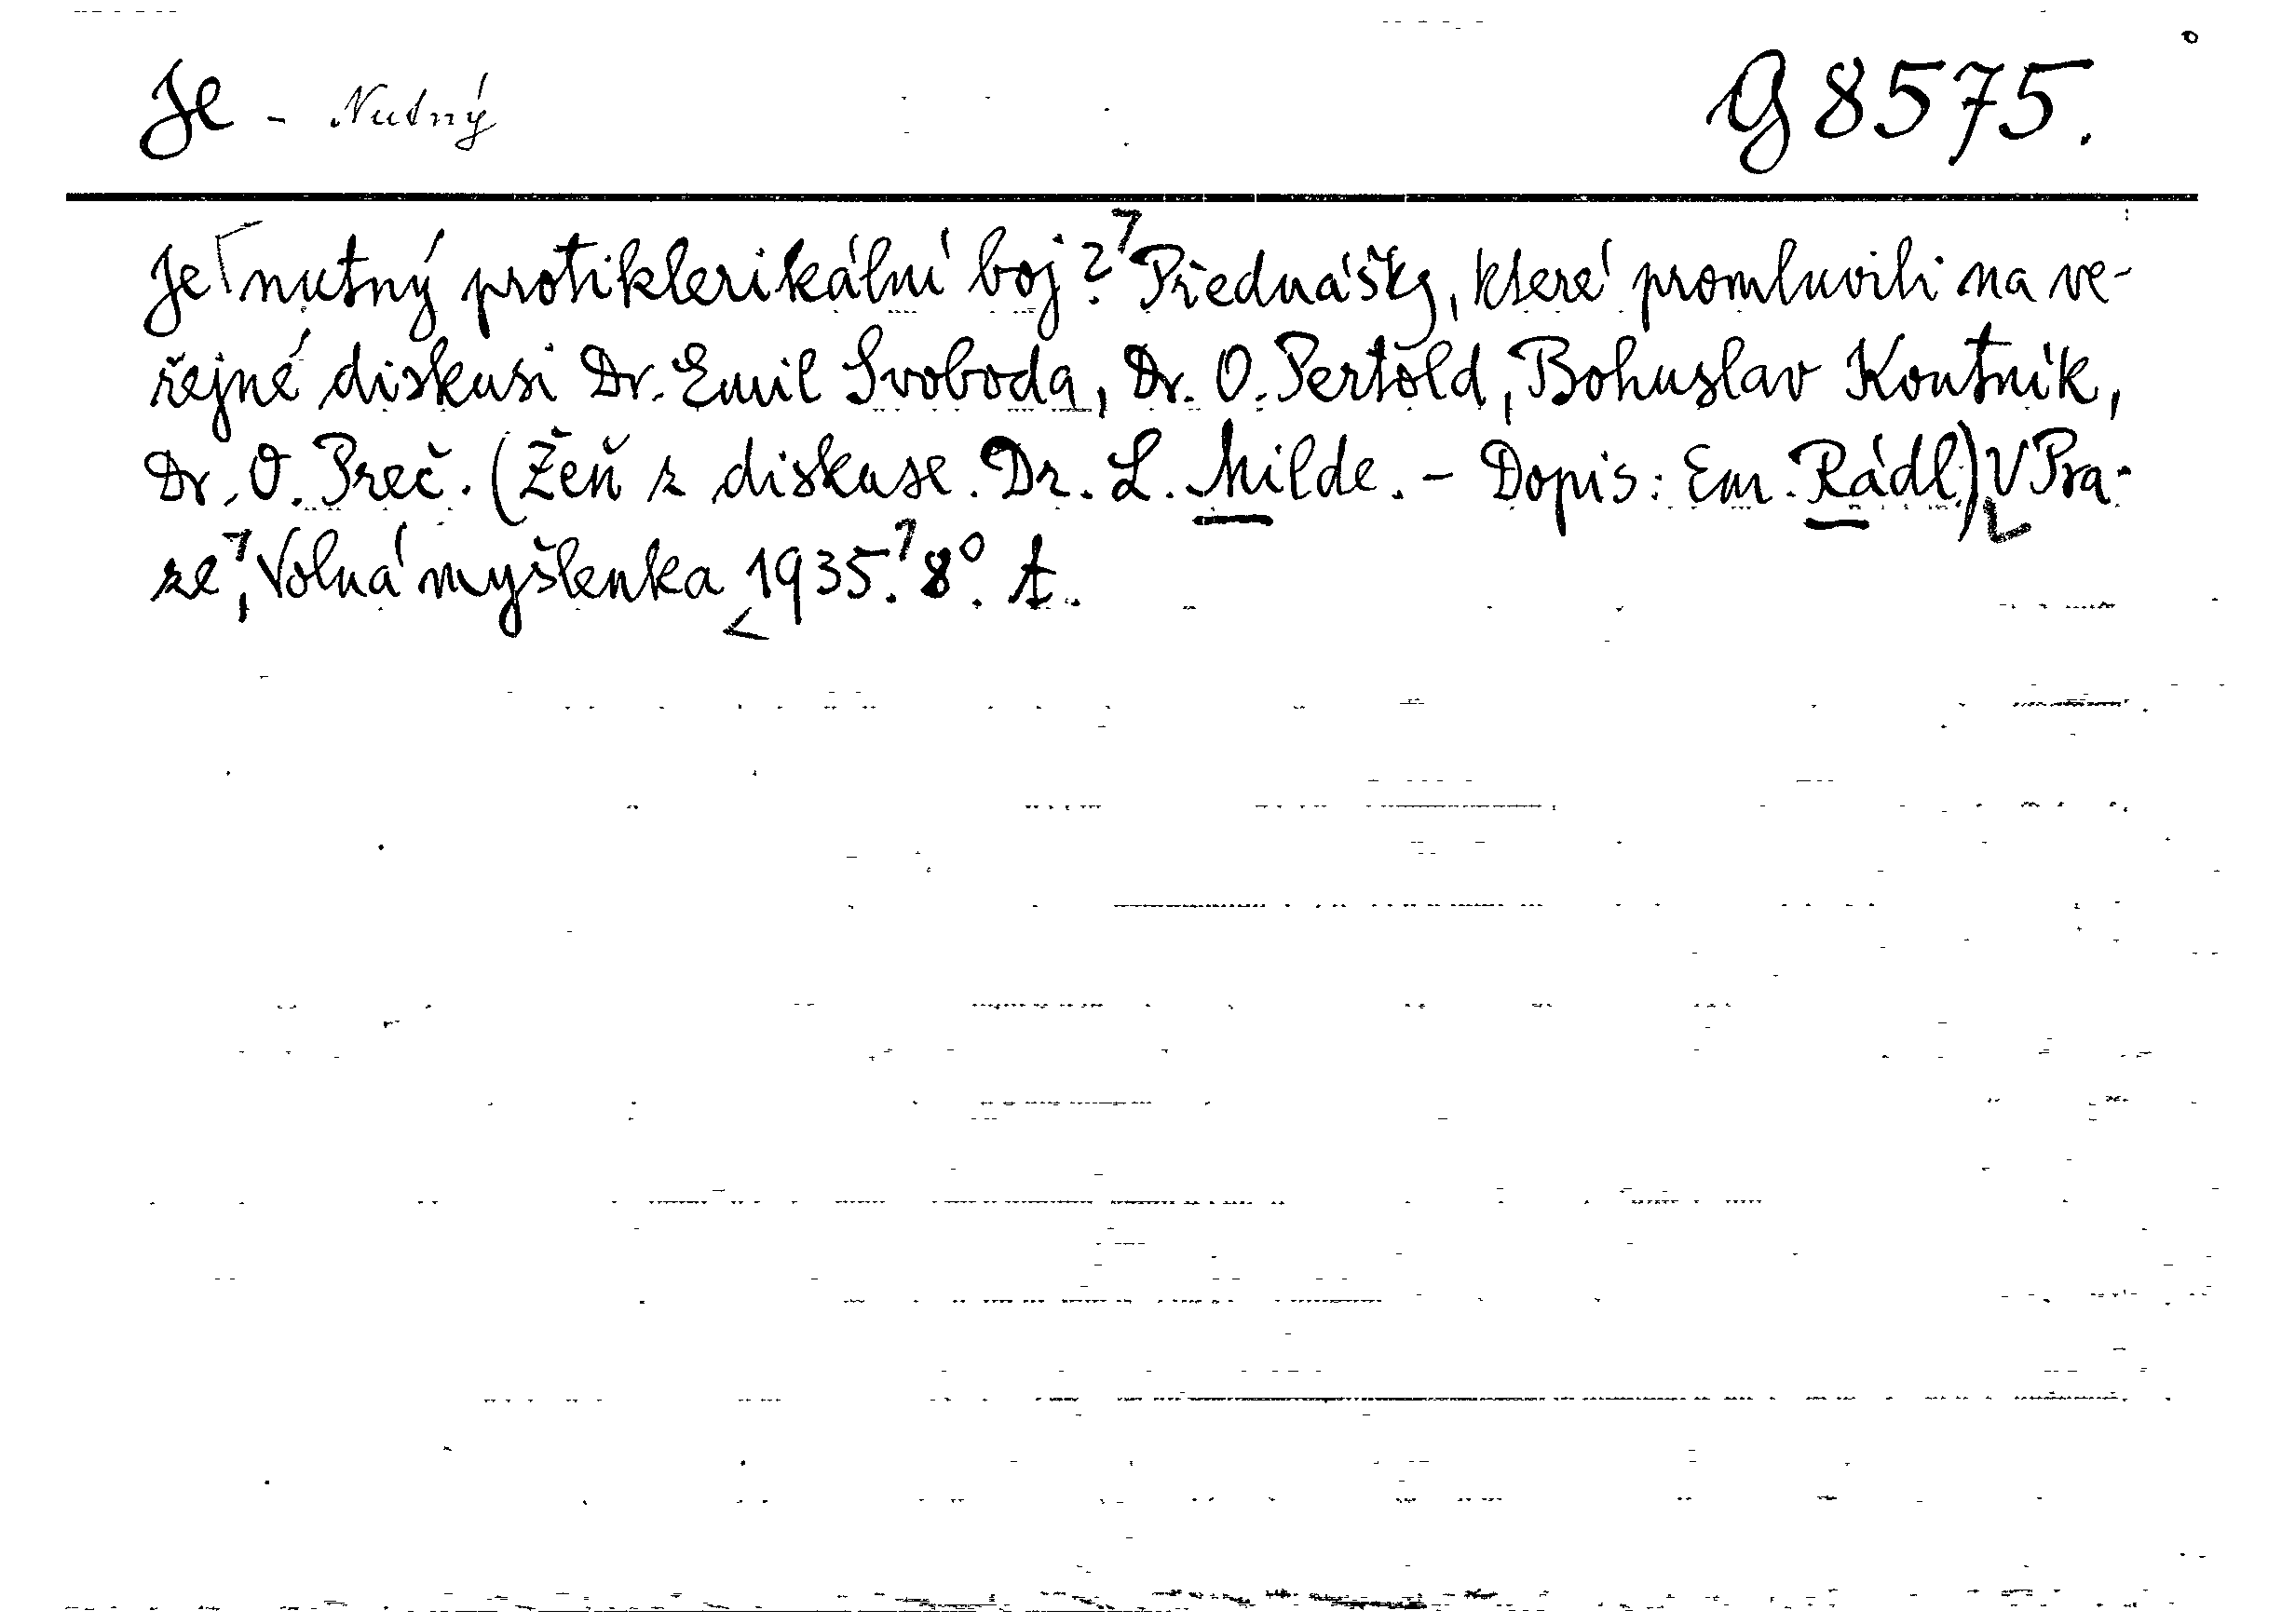 Je - Nutný G 8575.
Je nutný protiklerikální boj? Přednášky, které promluvili na ve-
řejné diskusi Dr. Emil Svoboda, Dr. O. Pertold, Bohuslav Koutník,
Dr. O. Preč. (Žeň z diskuse. Dr. L. Milde. - Dopis: Em. Rádl) V Pra-
ze, Volná myšlenka 1935. 8°. A.